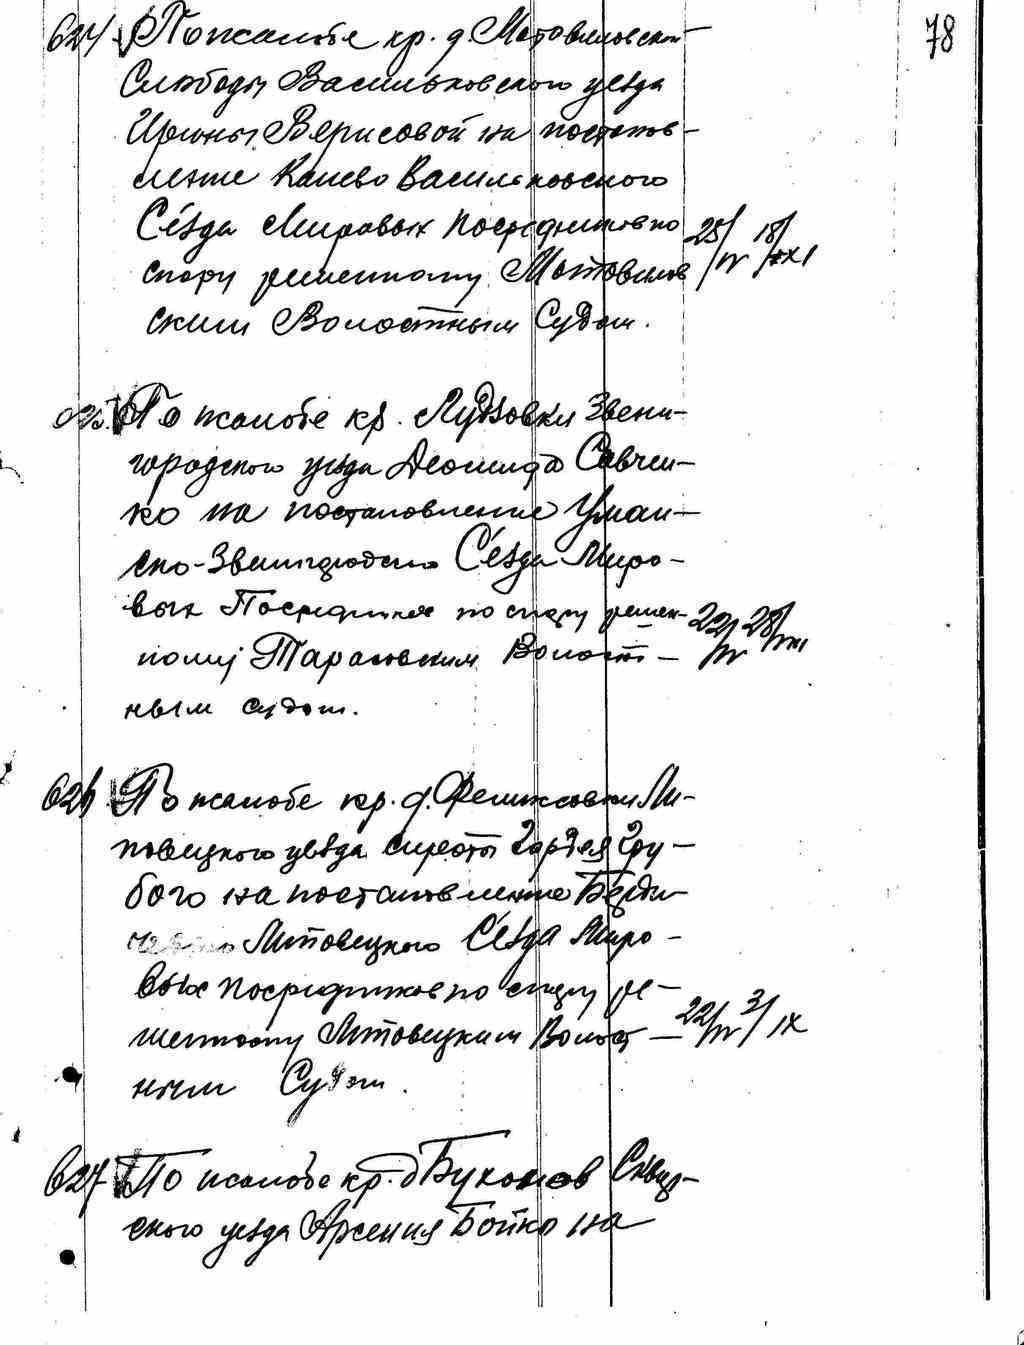 78
624 По жалобе кр. д. Мотовиловской
Слободы Васильковского уезда
Ирины Верисовой на постанов-
ление Киево Васильковского
Съезда Мировых посредников по
спору решенному Мотовилов
ским Волостным Судом.
25/IV 18/XI
По жалобе кр. Звени-
городского уезда Леонида Савчен-
ко на постановление Уман-
ско-Звенигородского Съезда Миро-
вых Посредников по спору решен-
ному Тарасовским Волост-
ным судом.
22/IV 28/
626 По жалобе кр. д. Феликсовки Ли-
повецкого уезда сироты Гордея Гру-
бого на постановление Берди
Липовецкого Съезда Миро-
вых посредников по спору ре-
шенному Липовецким Волост-
ным Судом.
22/IV 3/IX
627 По жалобе кр. д Сквир-
ского уезда Арсения Бойко на